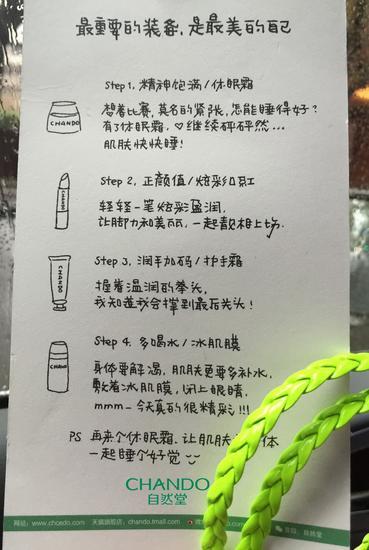 最重要的装备,是最美的自己
Step 1. 精神饱满/休眠霜
想着比赛,莫名的紧张,怎能睡得好?
有了休眠霜,♡继续砰砰然...
肌肤快快睡!
CHANDO
Step 2. 正颜值/炫彩口红
轻轻一笔炫彩盈润,
让脚力和美丽,一起靓相上场.
CHANDO
Step 3. 润手加码/护手霜
握着温润的拳头,
我知道我会撑到最后关头!
CHANDO
Step 4. 多喝水/冰肌膜
身体要解渴,肌肤更要多补水,
敷着冰肌膜,闭上眼睛,
mmm-今天真的很精彩!!!
CHANDO
PS 再来个休眠霜.让肌肤 体
一起睡个好觉
CHANDO
自然堂
网址:www.chcedo.com 天猫旗舰店:chando.tmall.com 自然堂